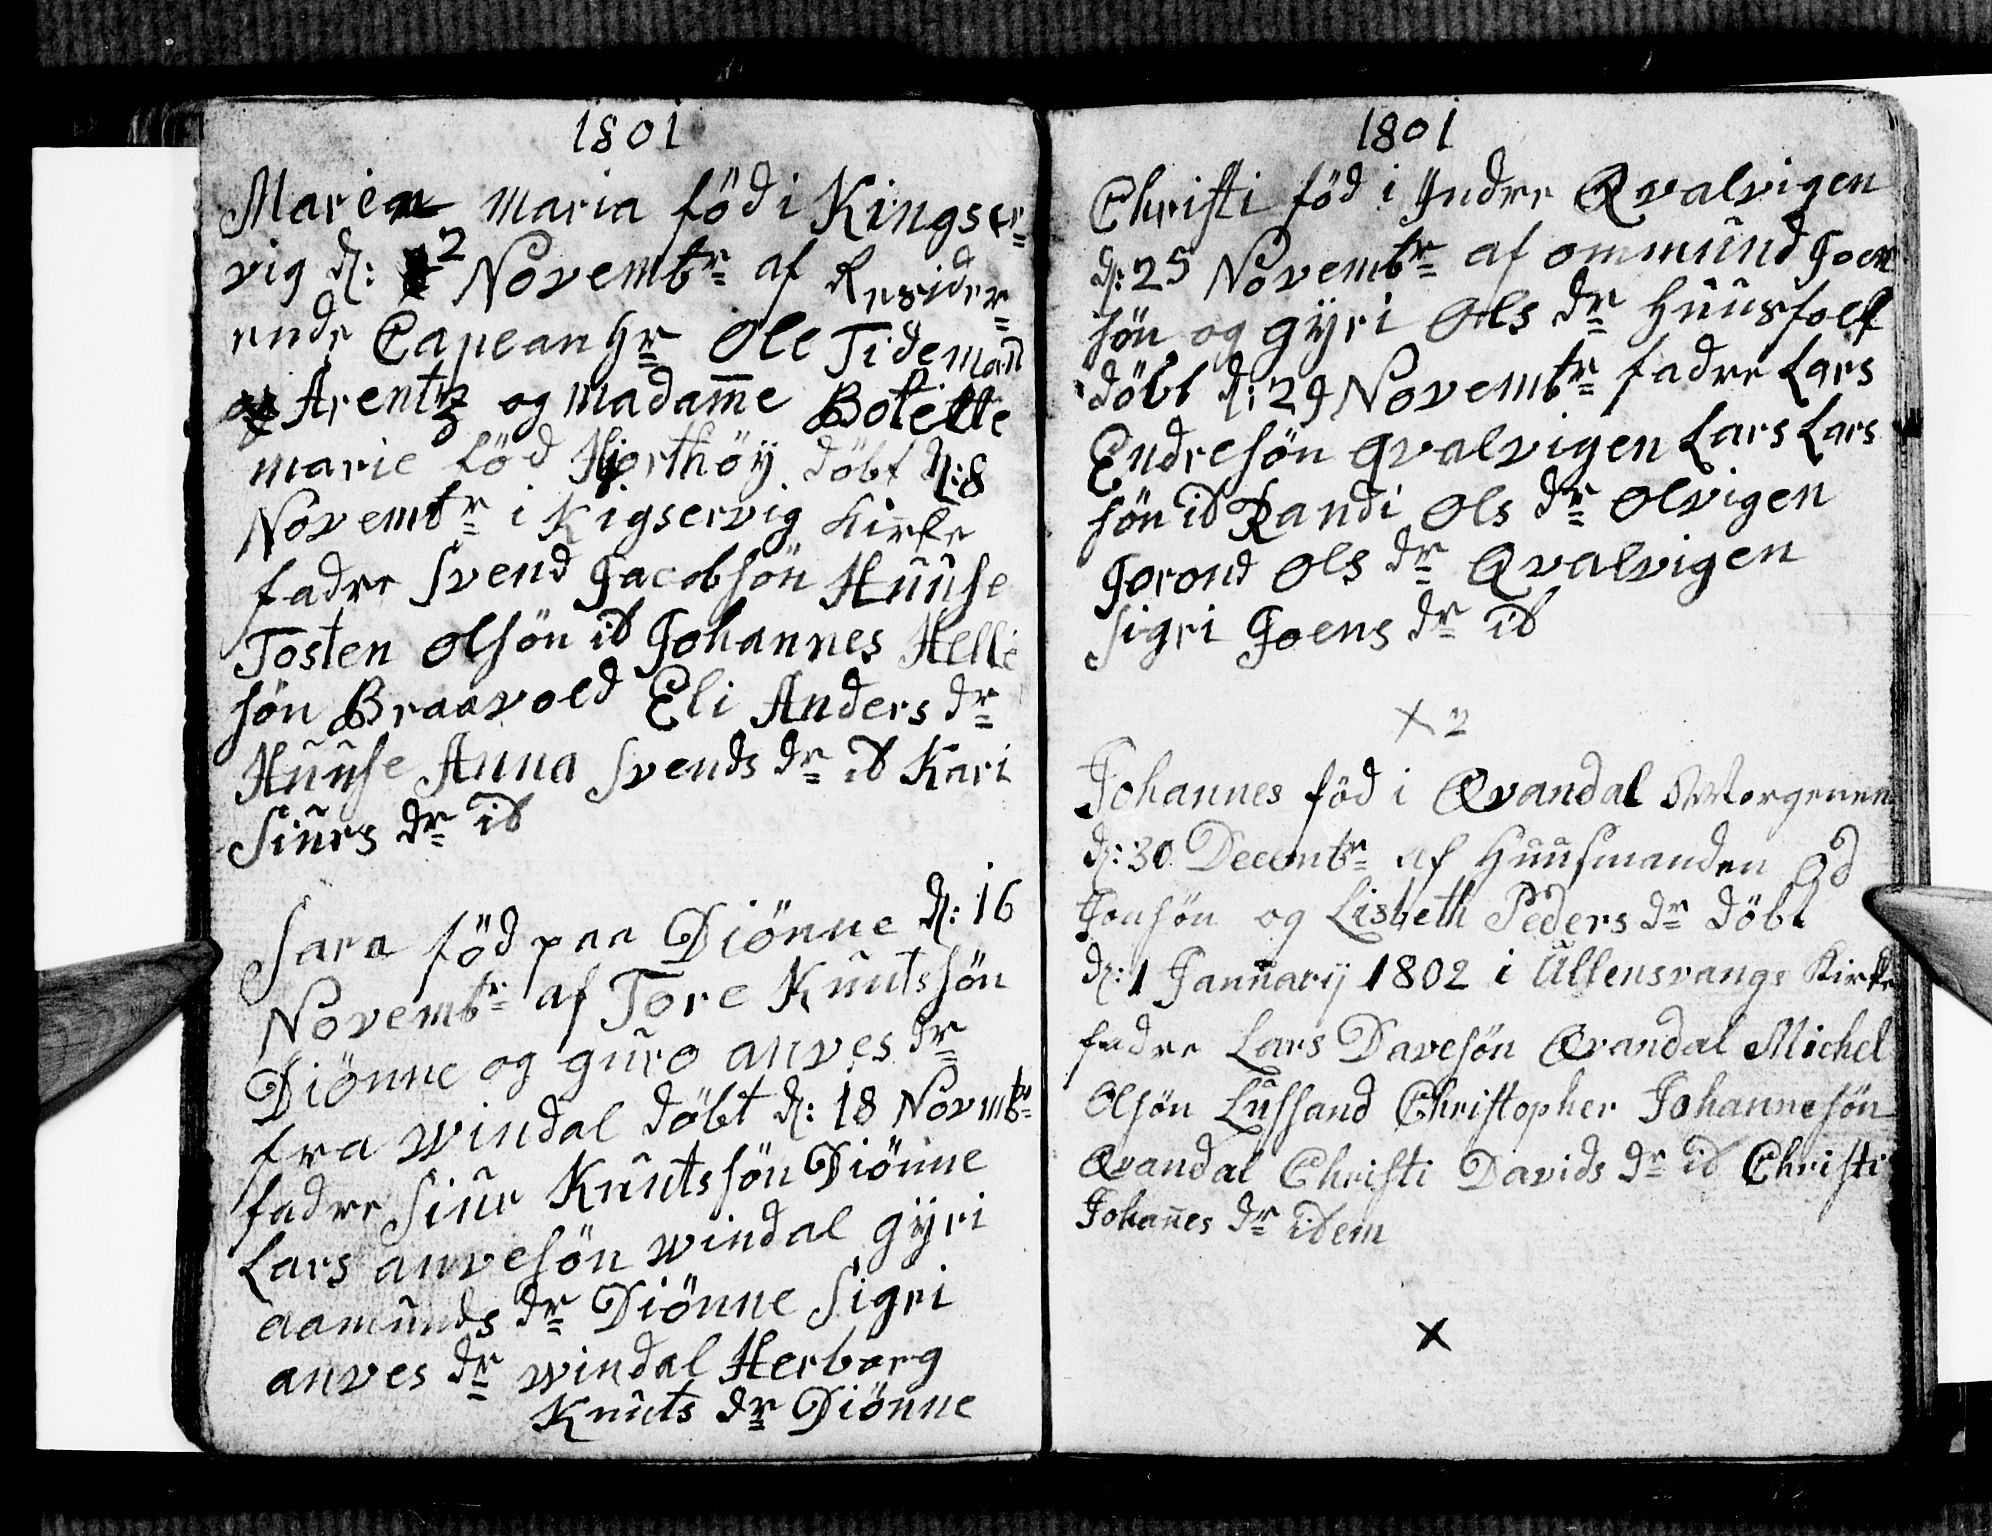 1801
Marien Maria föd i Kingser
vig d: 2 Novembr af Resider
ende Capean Hr Ole Tideman
Arentz og Madame Botilte
marie föd Hjorthöy döbt d: 8
Novembr i Kigservig Kirke
fadre Svend Jacobsön Huuse
Tosten Olsön id Johannes Helli
sön Braavold Eli Anders dr
Huuse Anna Svends dr id Kari
Siurs dr id
Sara föd paa Diönne d: 16
Novembr af Tore Knutssön
Diönne og guro anves dr
fra windal döbt d: 18 Novmbr
fadre Siur Knutssön Diönne
Lars anvesön windal gÿri
aamunds dr Diönne Sigri
anves dr windal Herborg
Knuts dr Diönne
1801
Christi föd i Indre Qvalvigen
d: 25 Novembr af ommund Joen
sön og gÿri Ols dr Huusfolk
döbt d: 29 Novembr fadre Lars
Endresön qvalvigen Lars Lars
sön id Randi Ols dr Olvigen
Gorond Ols dr Qvalvigen
Sigri Joens dr id
x 2
Johannes föd i Qvandal Morgenen
d: 30 Decembr af Huusmanden Od
Jonsön og Lisbeth Peders dr döbt
d: 1 Januarij 1802 i Ullensvangs Kirke
fadre Lars Davesön Qvandal Michel
Olsön Lussand Christopher Johannesön
Qvandal Christi Davids dr id Christi
Johanes dr idem
x